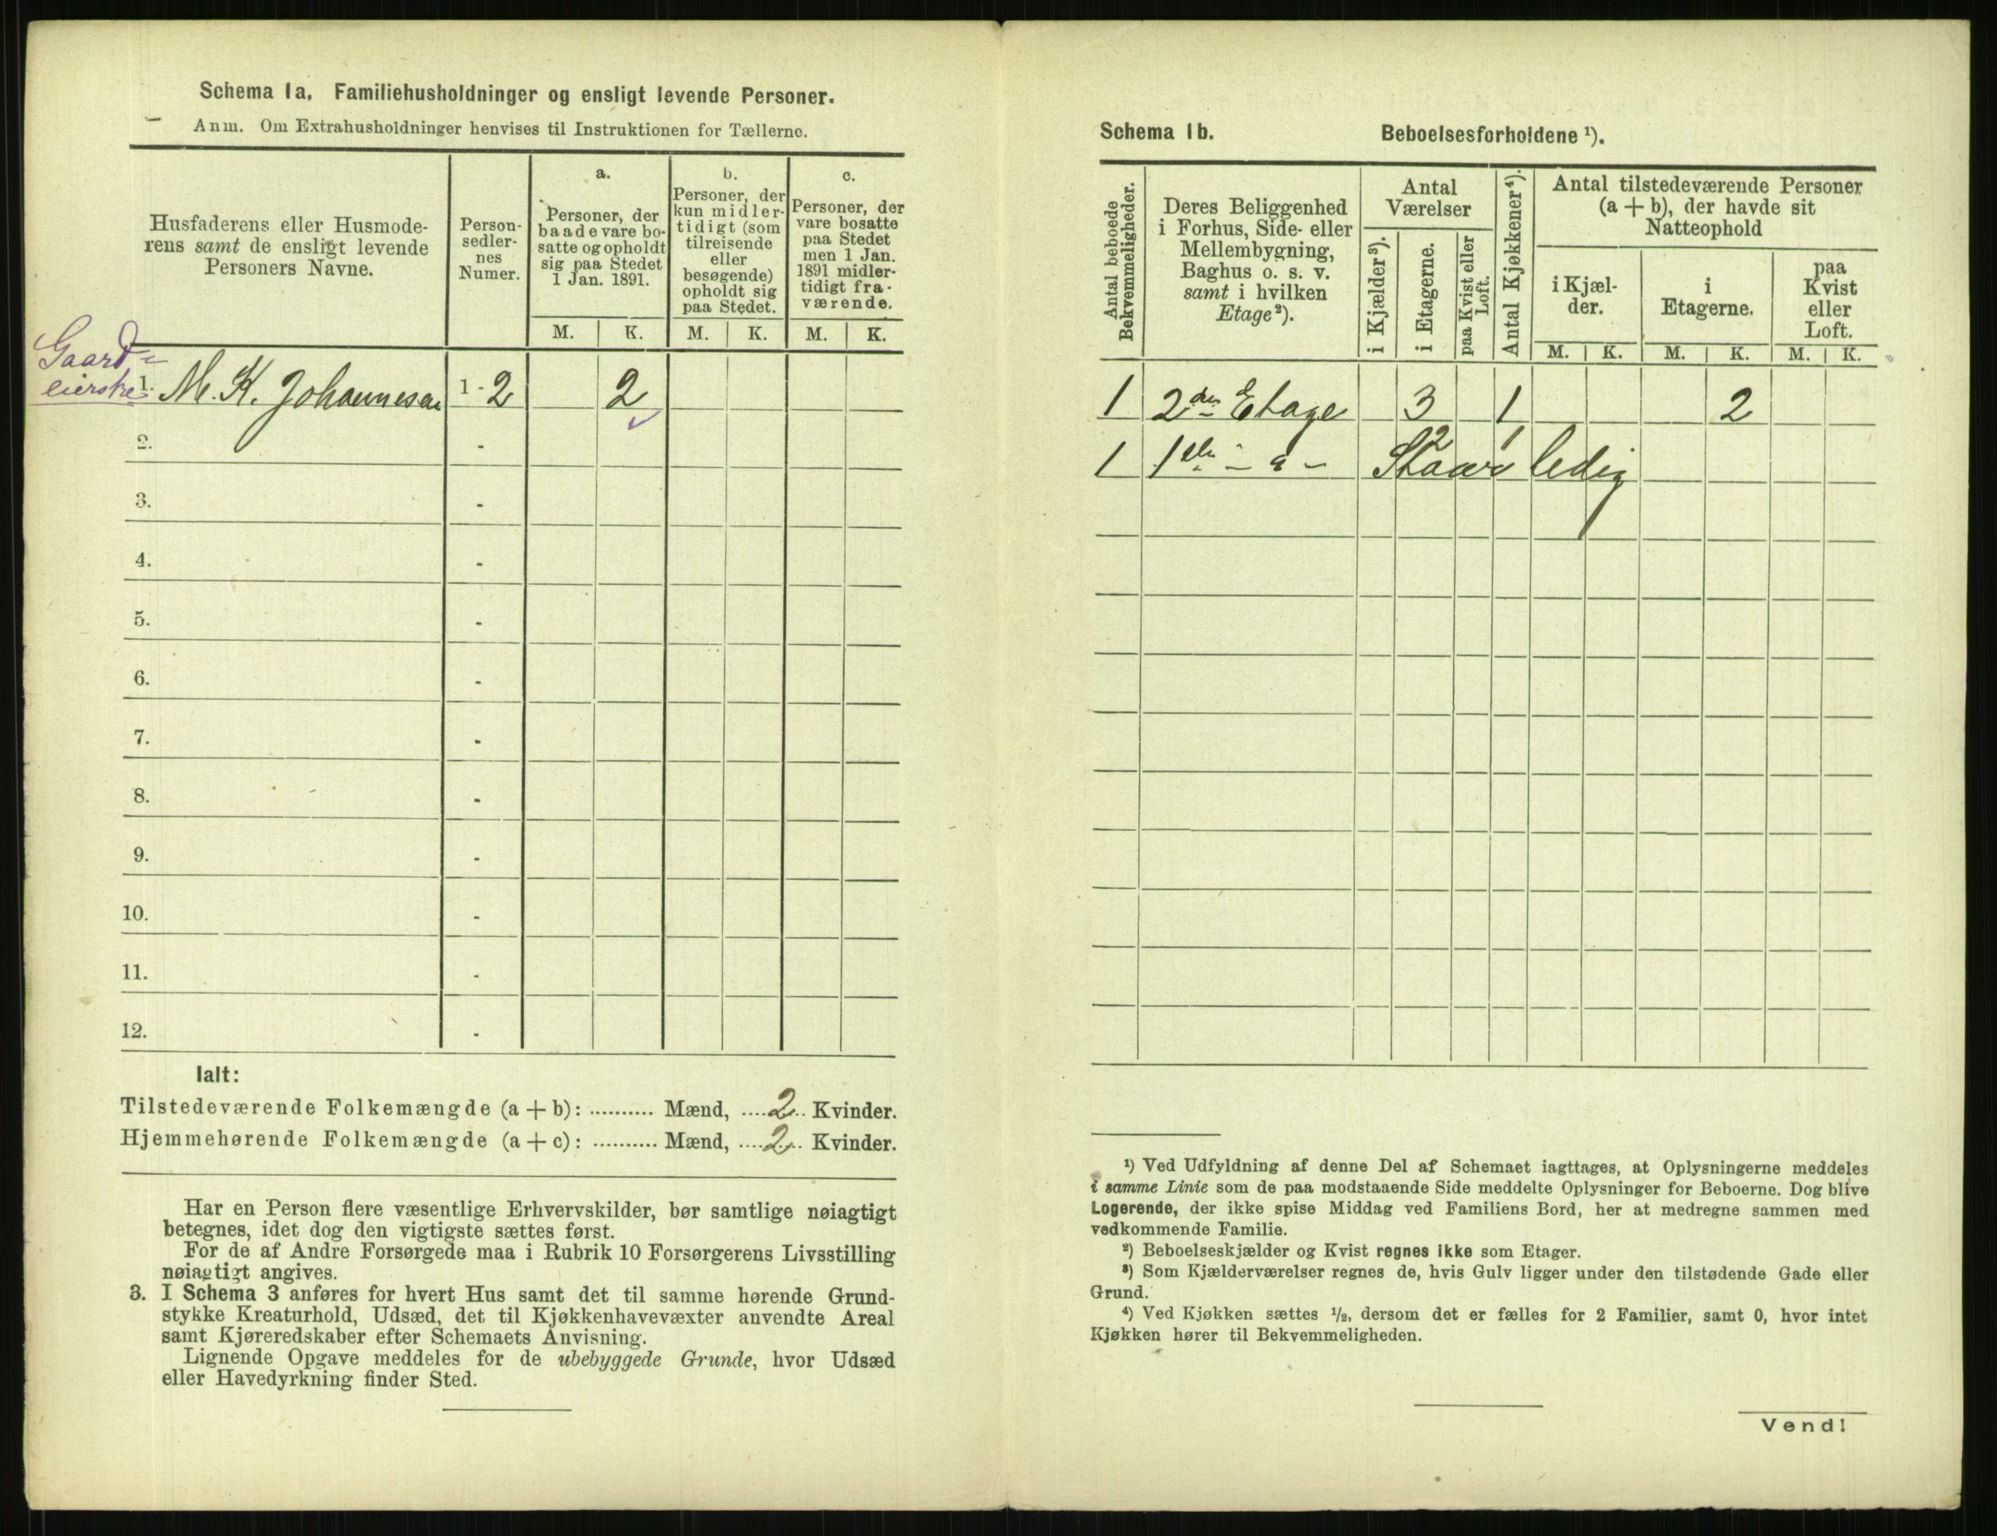 Schema 1a. Familiehusholdninger og ensligt levende Personer.
Anm. Om Extrahusholdninger henvises til Instruktionen for Tællerne.
Husfaderens eller Husmode-
rens samt de ensligt levende
Personers Navne.
Person-
sedler-
nes
Numer.
a.
Personer, der
baade vare bo-
satte og opholdt
sig paa Stedet
1 Jan. 1891.
b.
Personer, der
kun midler-
tidigt (som
tilreisende
eller
besøgende)
opholdt sig
paa Stedet.
c.
Personer, der
vare bosatte
paa Stedet
men 1 Jan.
1891 midler-
tidigt fra-
værende.
M. K. M. K. M. K.
Gaard-
eierske
1. M. K. Johannesen 1 - 2 2
2. -
3. -
4. -
5. -
6. -
7. -
8. -
9. -
10. -
11. -
12. -
Ialt:
Tilstedeværende Folkemængde (a + b): .......... Mænd, ....2... Kvinder.
Hjemmehørende Folkemængde (a + c): .......... Mænd, ....2... Kvinder.
Har en Person flere væsentlige Erhvervskilder, bør samtlige nøiagtigt
betegnes, idet dog den vigtigste sættes først.
For de af Andre Forsørgede maa i Rubrik 10 Forsørgerens Livsstilling
nøiagtigt angives.
3. I Schema 3 anføres for hvert Hus samt det til samme hørende Grund-
stykke Kreaturhold, Udsæd, det til Kjøkkenhavevæxter anvendte Areal
samt Kjøreredskaber efter Schemaets Anvisning.
Lignende Opgave meddeles for de ubebyggede Grunde, hvor Udsæd
eller Havedyrkning finder Sted.
Schema 1b. Beboelsesforholdene ¹).
Antal beboede
Bekvemmeligheder.
Deres Beliggenhed
i Forhus, Side- eller
Mellembygning,
Baghus o. s. v.
samt i hvilken
Etage²).
Antal
Værelser
i Kjælder³).
i Etagerne.
paa Kvist eller
Loft.
Antal Kjøkkener⁴).
Antal tilstedeværende Personer
(a + b), der havde sit
Natteophold
i Kjæl-
der.
i
Etagerne.
paa
Kvist
eller
Loft.
M. K. M. K. M. K.
1 2den Etage 3 1 2
1 1ste - " - 2 1
Staar ledig
¹) Ved Udfyldning af denne Del af Schemaet iagttages, at Oplysningerne meddeles
i samme Linie som de paa modstaaende Side meddelte Oplysninger for Beboerne. Dog blive
Logerende, der ikke spise Middag ved Familiens Bord, her at medregne sammen med
vedkommende Familie.
²) Beboelseskjælder og Kvist regnes ikke som Etager.
³) Som Kjælderværelser regnes de, hvis Gulv ligger under den tilstødende Gade eller
Grund.
⁴) Ved Kjøkken sættes ½, dersom det er fælles for 2 Familier, samt 0, hvor intet
Kjøkken hører til Bekvemmeligheden.
Vend!